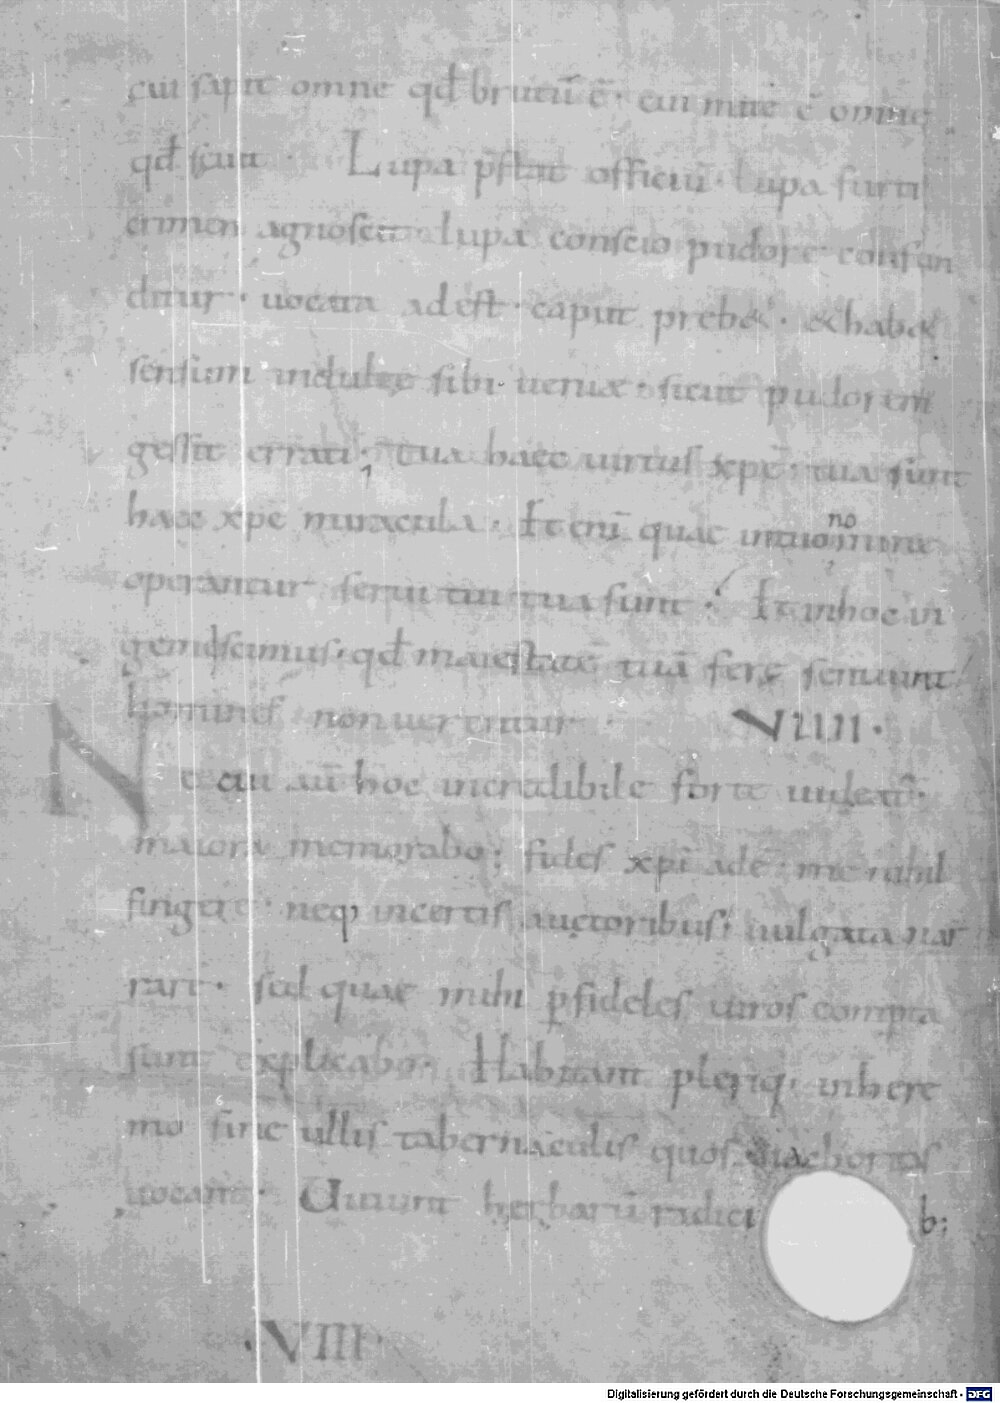 cui sapit omne qđ brutū ē· cui mite ē omne
qđ seuit · Lupa p̄stat officiū· lupa furti
crimen agnoscit lupa conscio pudore confun
ditur· uocata adest· caput preb&· & hab&
sensum indultę sibi ueniae· sicut pudorem
gessit errati· tua haec uirtus xpē· tua sunt
haec xpē miracula· Et enī quae in tuo nomine
operantur serui tui tua sunt· Et in hoc in
gemescimus· qđ maiestatē tuā ferę sentiunt
homines non uerentur · VIIII·
Ne cui aū hoc incredibile forte uideat͛·
maiora memorabo; fides xpi adē· me nihil
fingere· neq; incertis auctoribus· uulgata nar
rare· sed quae mihi ꝑ fideles uiros comperta
sunt explicabo· Habitant pleriq· in here
mo sine ullis tabernaculis quos anachoretas
uocant· Uiuunt herbarū radici b;
·VIII·
Digitalisierung gefördert durch die Deutsche Forschungsgemeinschaft - DFG